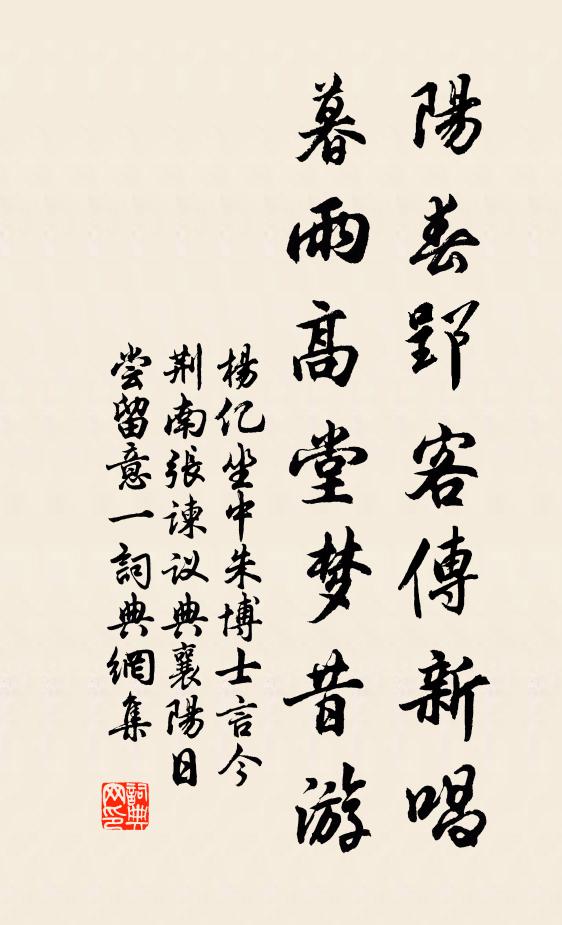 陽春郢客傳新唱
暮雨高堂梦昔游
楊亿坐中朱博士言今
荆南張諫议典襄陽日
尝留意一詞典網集
詞典
网印